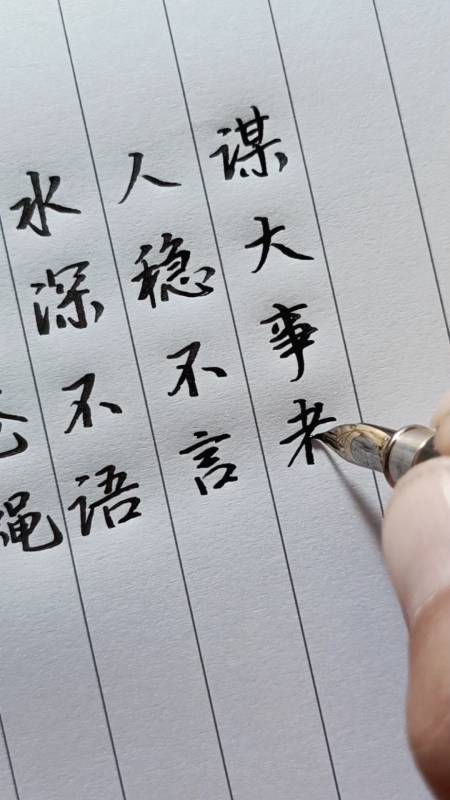 水深不语
人稳不言
谋大事